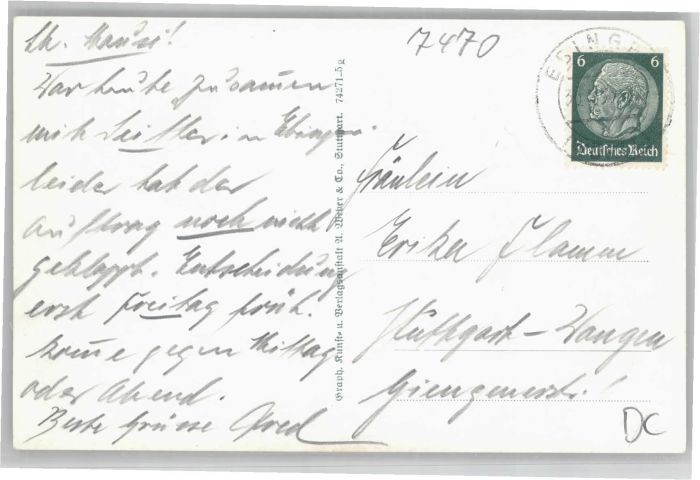 Lb. Mausi!
War heute zusammen
mit Seitter in Ebingen
leider hat der
Auftrag noch nicht
geklappt. Entscheidung
erst Freitag früh.
Komme gegen Mittag
oder Abend.
Beste Grüsse Fred
Graph. Kunst- u. Verlagsanstalt A. Weber & Co., Stuttgart. 74271-5g
7470
EBINGEN
6 6
Deutsches Reich
Fräulein
Erika Flamm
Stuttgart-Wangen
Giengenerstr. 1
DC